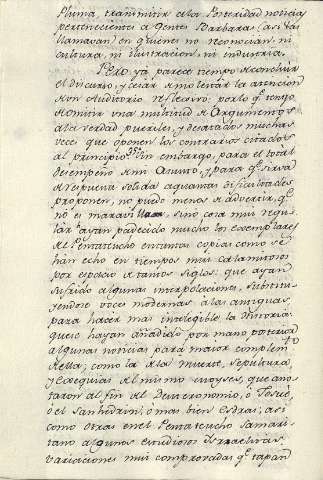 Pluma, transmitir ala Posteridad noticias
pertenecientes a gentes Barbara (asi las
llamavan) en quienes no reconocian ni
cultura, ni ilustracion, ni industria.
Pero ya parece tiempo de concluir
el discurso, y cesar de molestar la atencion
de un Auditorio respetavo: por lo q.e tengo
de omitir una multitud de Argumentos
a la verdad pueriles, y desatados muchas
veces que oponen los contrarios citados
al principio. Sin embargo, para el total
desempeño de mi Asunto, y para q.e sirva
de respuesta solida a quantas dificultades
proponen, no puedo menos de advertir, q.e
no es maravilla, sino cosa mui regu-
lar hayan padecido mucho los exemplares
del Pentateucho en tantas copias como se
han echo en tiempos mui calamitosos
por espacio de tantos siglos: que ayan
sufrido algunas interpolaciones, substitu-
yendose voces modernas à las antiguas,
para hacer mas intelegible la Historia:
que se hayan añadido por mano posterior
algunas noticias para maior complem.to
de ella; como la de la muerte, sepultura
y exequias del mismo Moyses, que ano-
taron al fin del Deuteronomio, o Josuè
ò el Sanhedrin; ò mas bien Esdras; asi
como otras en el Pentateucho Samari-
tano algunos estudiosos Israelitas,
variaciones mui comprovadas q.e tapan